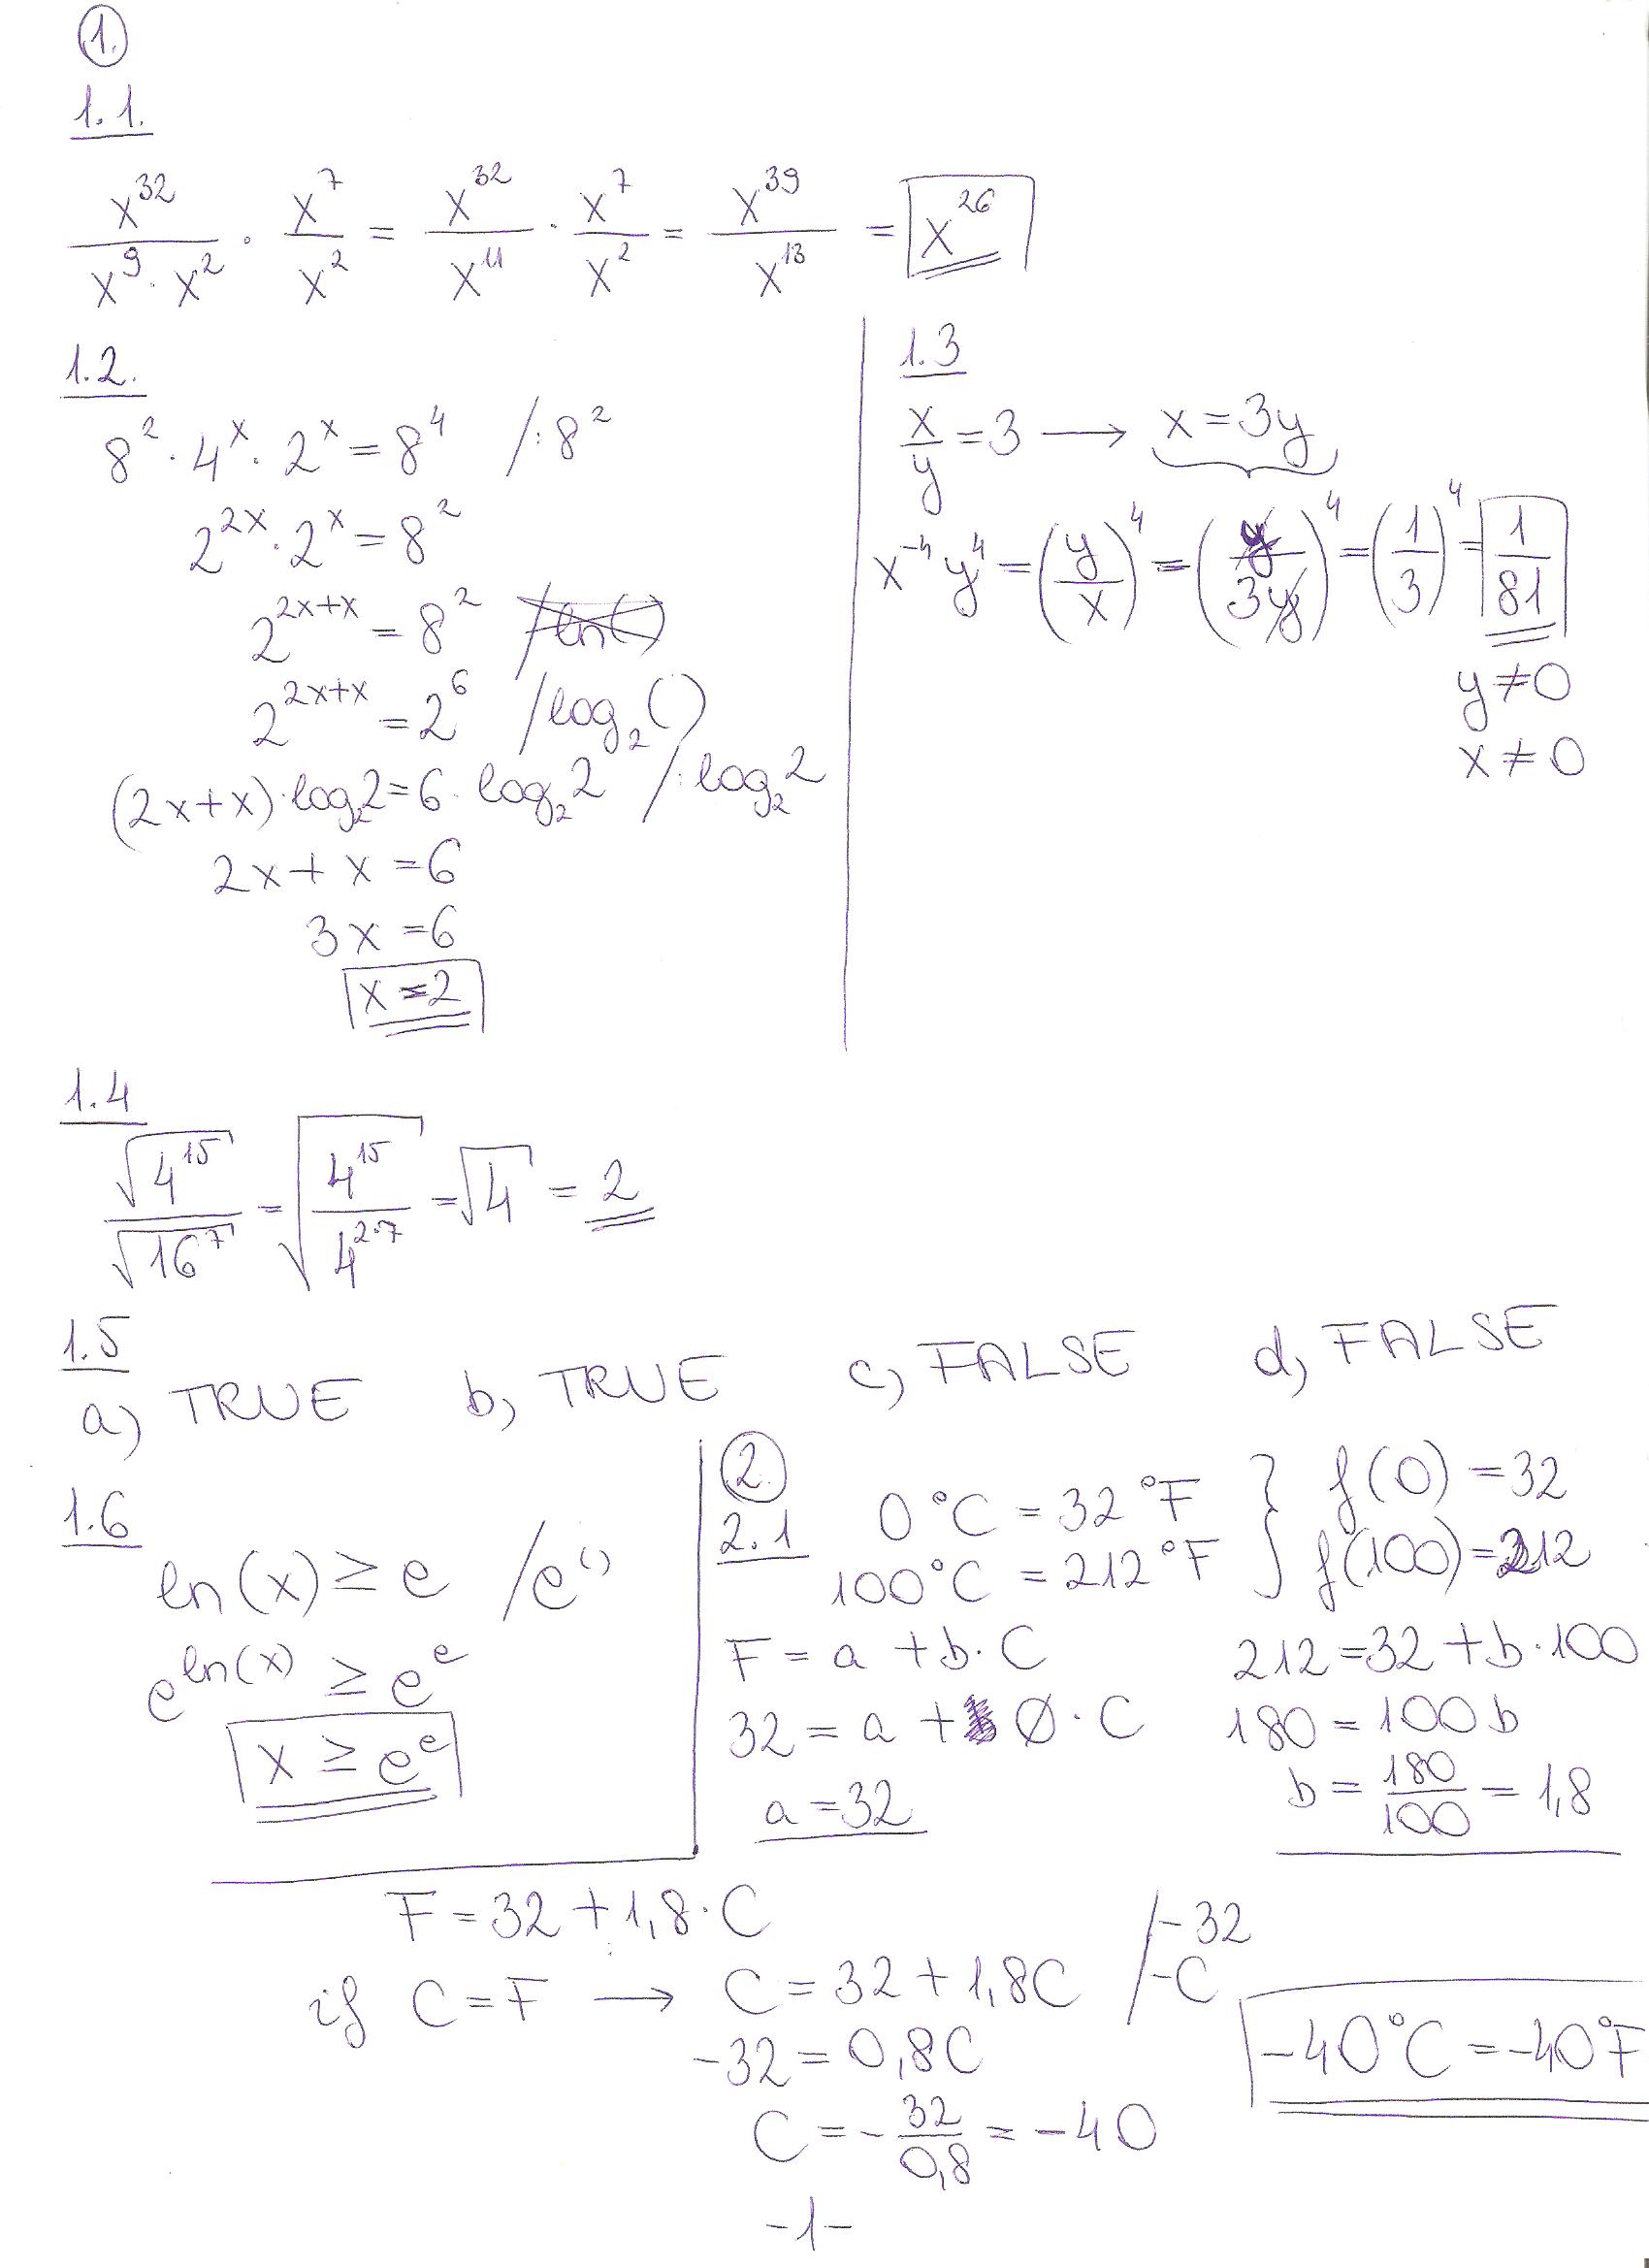 1.
1.1.
x^32 / (x^9 · x^2) · x^7 / x^2 = x^32 / x^11 · x^7 / x^2 = x^39 / x^13 = x^26
1.2.
8^2 · 4^x · 2^x = 8^4 /:8^2
2^2x · 2^x = 8^2
2^2x+x = 8^2
2^2x+x = 2^6 /log_2()
(2x+x)·log_2 2 = 6·log_2 2 /:log_2 2
2x+x=6
3x=6
x=2
1.3
x/y = 3 → x=3y
x^-4 y^4 = (y/x)^4 = (y/3y)^4 = (1/3)^4 = 1/81
y≠0
x≠0
1.4
√4^15 / √16^7 = √(4^15 / 4^2·7) = √4 = 2
1.5
a) TRUE b, TRUE c) FALSE d, FALSE
1.6
ln(x) ≥ e /e^()
e^ln(x) ≥ e^e
x ≥ e^e
2.
2.1
0°C = 32°F } f(0) = 32
100°C = 212°F } f(100) = 212
F = a + b·C
32 = a + 0·C
a = 32
212 = 32 + b·100
180 = 100b
b = 180/100 = 1,8
F = 32 + 1,8·C
if C = F → C = 32 + 1,8C /-32 /-C
-32 = 0,8C
C = - 32/0,8 = -40
-40°C = -40°F
-1-